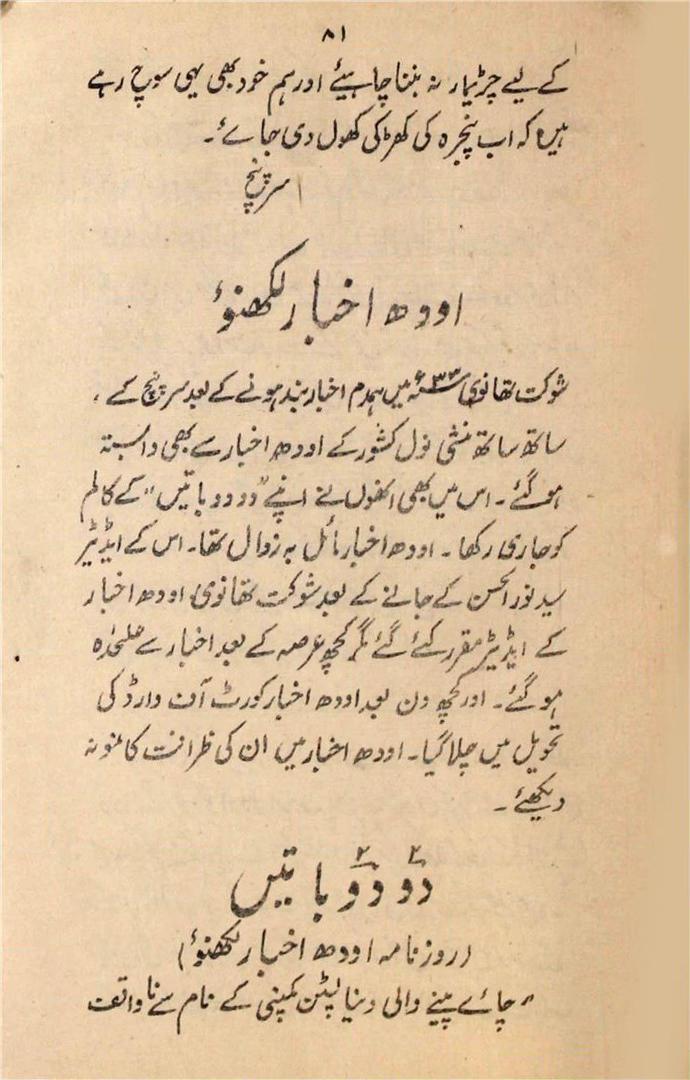 ۸۱
کے لیے چڑیمار نہ بننا چاہیئے اور ہم خود بھی یہی سوچ رہے
ہیں کہ اب پنجرہ کی کھڑکی کھول دی جائے۔
سر پنچ
اودھ اخبار لکھنوٴ
شوکت تھانوی ۳۳ء میں ہمدم اخبار بند ہونے کے بعد سر پنچ کے
ساتھ ساتھ منشی نول کشور کے اودھ اخبار سے بھی وابستہ
ہو گئے۔ اس میں بھی انھوں نے اپنے ”دو دو باتیں“ کے کالم
کو جاری رکھا۔ اودھ اخبار مائل بہ زوال تھا۔ اس کے ایڈیٹر
سید نور الحسن کے جانے کے بعد شوکت تھانوی اودھ اخبار
کے ایڈیٹر مقرر کئے گئے مگر کچھ عرصہ کے بعد اخبار سے علیٰحدہ
ہو گئے۔ اور کچھ دن بعد اودھ اخبار کورٹ آف وارڈ کی
تحویل میں چلا گیا۔ اودھ اخبار میں ان کی ظرافت کا نمونہ
دیکھئے۔
دو دو باتیں
(روزنامہ اودھ اخبار لکھنوٴ)
”چائے پینے والی دنیا لپٹن کمپنی کے نام سے ناواقف